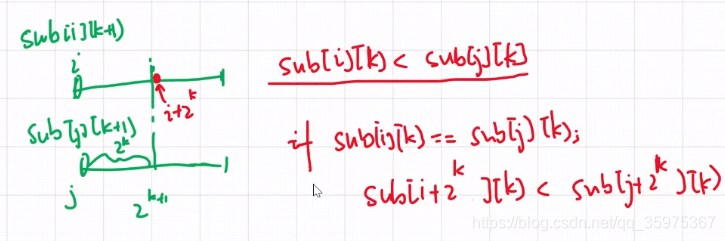 sub[i][k+1)
i
i
i+2^k
sub[j)[k+1)
2^k
j
2^{k+1}
sub[i)[k] < sub[j)[k]
if sub[i)[k) == sub[j)[k),
sub[i+2^k ][k) < sub[j+2^k )[k)
https://blog.csdn.net/qq_35975367